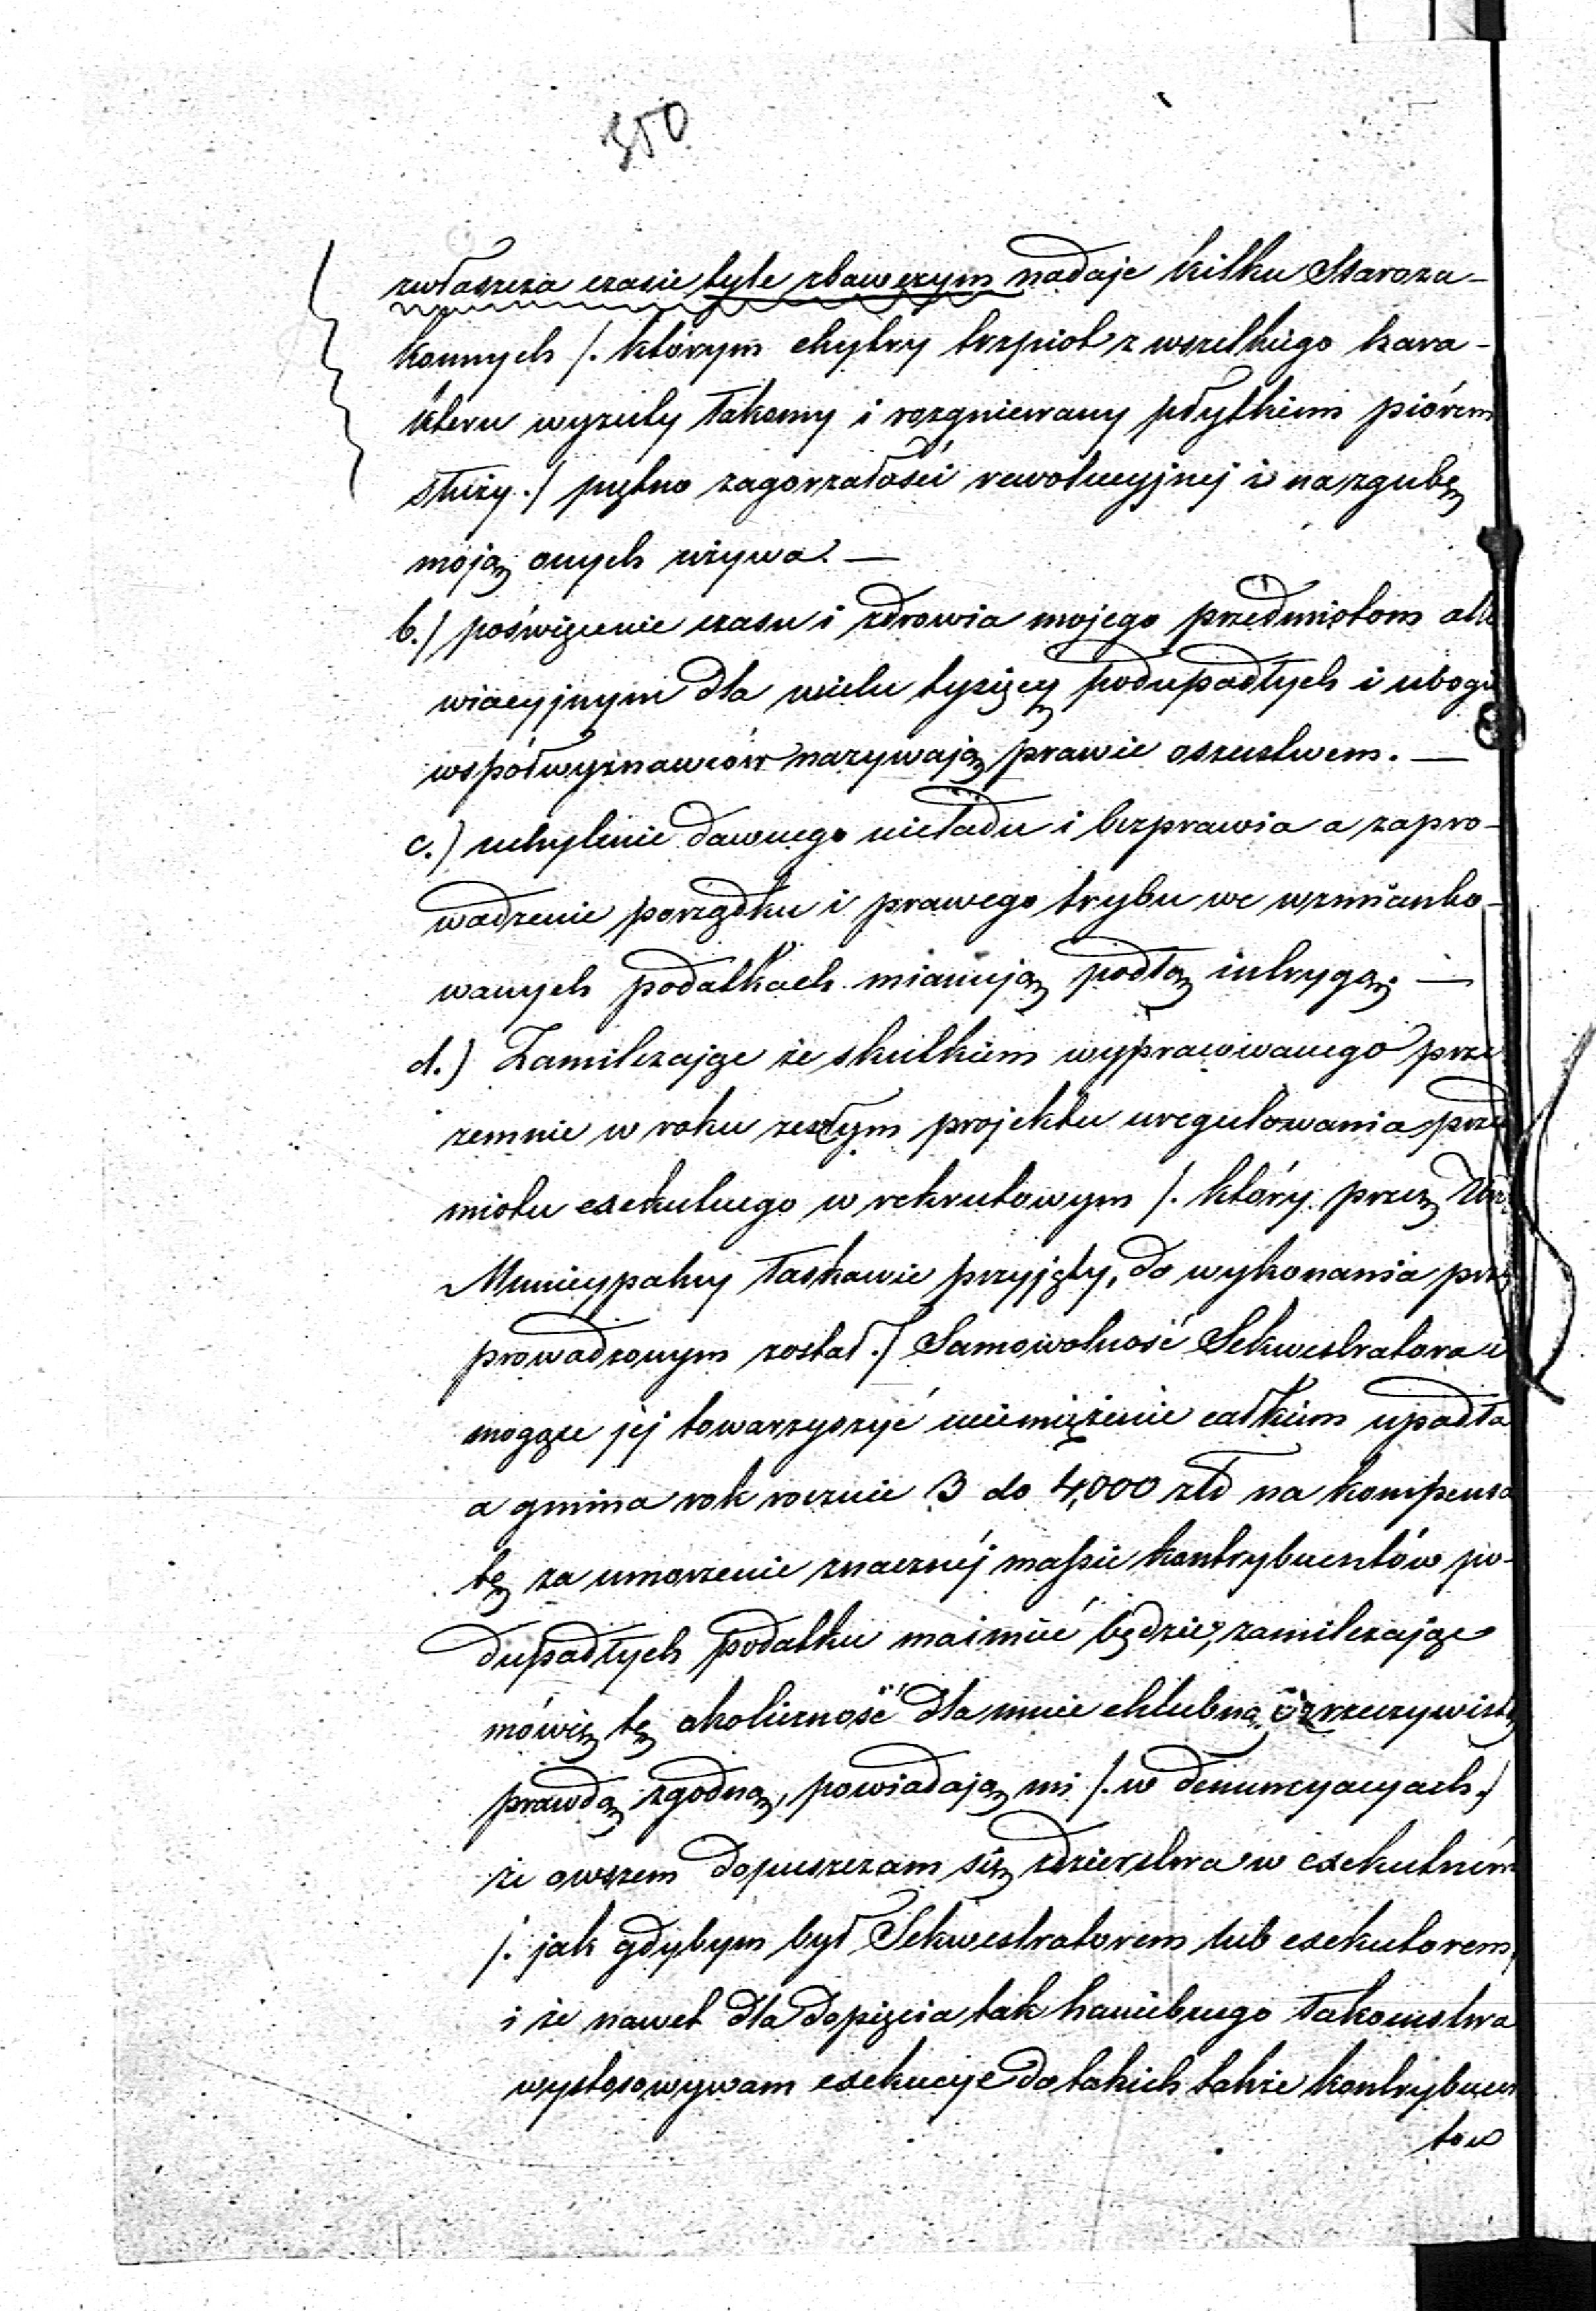 350
zwłaszcza czasie tyle zbawczym nadaje kilku Staroza-
konnych /. którym chytry trzpiot z wszelkiego kara-
kteru wyzuty łakomy i rozgniewany płytkiem piórem
służy ./ piętno zagorzałości rewolucyjnej i na zgubę
moją onych używa. —
b.) poświęcenie czasu i zdrowia mojego przedmiotom alle
wiacyjnym dla wielu tysięcy podupadłych i ubogi
współwyznawców nazywają prawie oszustwem. —
c.) uchylenie dawnego nieładu i bezprawia a zapro-
wadzenie porządku i prawego trybu we wzmianko-
wanych podatkach mianują podłą intrygą; —
d.) Zamilczając że skutkiem wyprawiwanego prze
zemnie w roku zeszłym projektu uregulowania przed
miotu exekutnego w rekrutowym /. który przez Urz
Municypalny łaskawie przyjęty, do wykonania prze
prowadzonym został ./ Samowolność Sekwestratora i
mogące jej towarzyszyć uciemiężenie całkiem upadła
a gmina rok rocznie 3 do 4,000 złp na kompensa
tę za umorzenie znacznéj massie kontrybuentów po-
dupadłych podatku maimieć będzie, zamilczając
mówię tę okoliczność dla mnie chlubną i z rzeczywistą
prawdą zgodną, powiadają mi /. w denuncyacyach ./
że owszem dopuszczam się zdzierstwa w exekutném
/. jak gdybym był Sekwestratorem lub exekutorem,
i że nawet dla dopięcia tak haniebnego łakomstwa
wystosowywam exekucye do takich także kontrybuen
tow